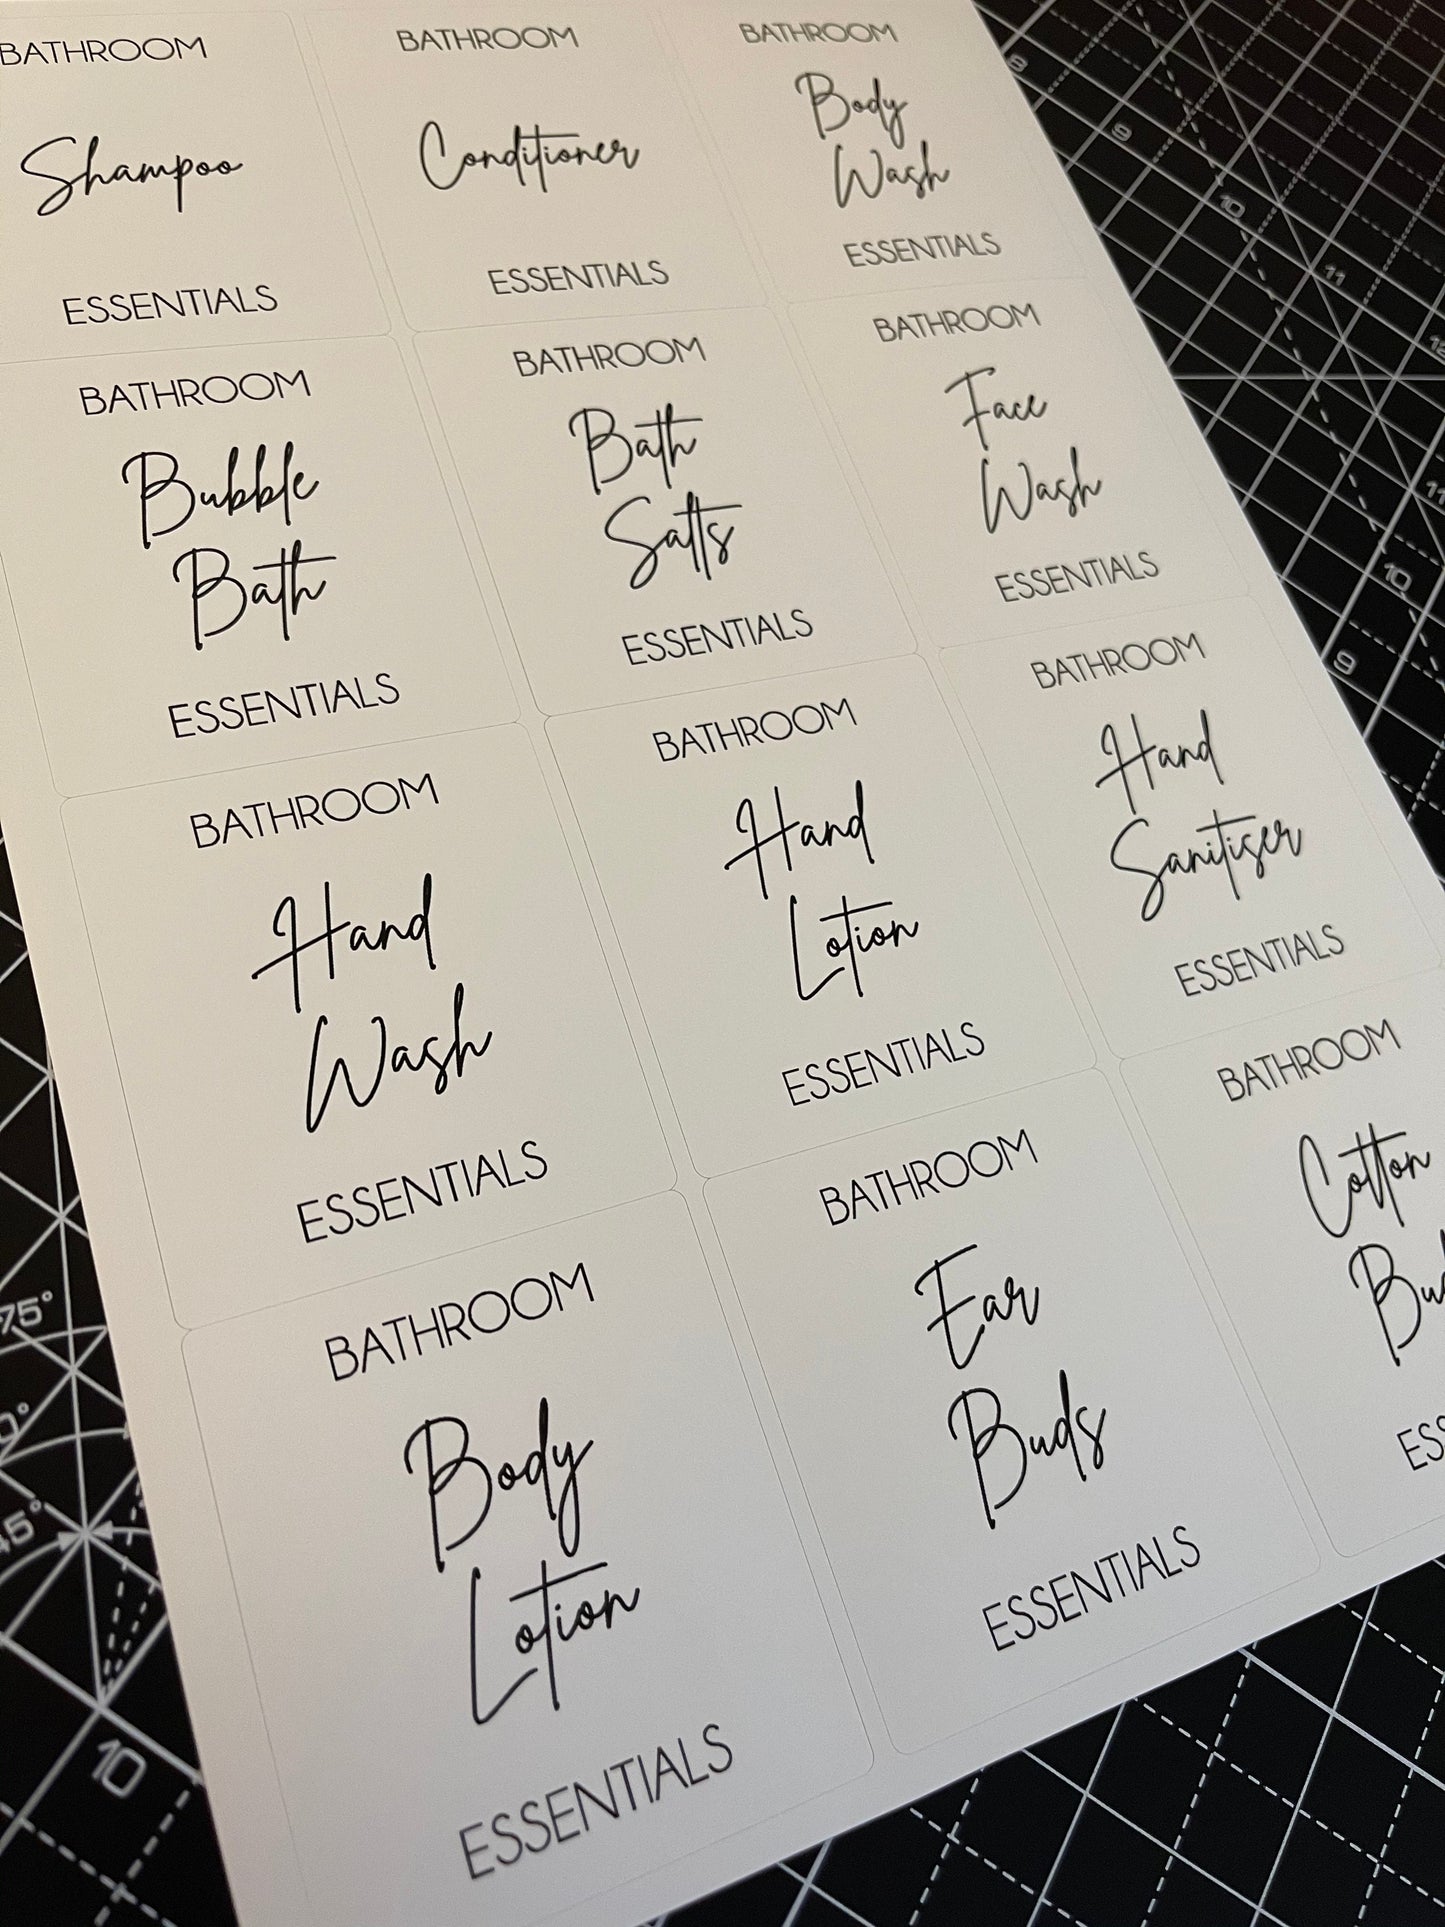 BATHROOM
Shampoo
ESSENTIALS
BATHROOM
Conditioner
ESSENTIALS
BATHROOM
Body
Wash
ESSENTIALS
BATHROOM
Bubble
Bath
ESSENTIALS
BATHROOM
Bath
Salts
ESSENTIALS
BATHROOM
Face
Wash
ESSENTIALS
BATHROOM
Hand
Wash
ESSENTIALS
BATHROOM
Hand
Lotion
ESSENTIALS
BATHROOM
Hand
Sanitiser
ESSENTIALS
BATHROOM
Body
Lotion
ESSENTIALS
BATHROOM
Ear
Buds
ESSENTIALS
BATHROOM
Cotton
8
9
10
11
12
11
10
9
75°
45°
10